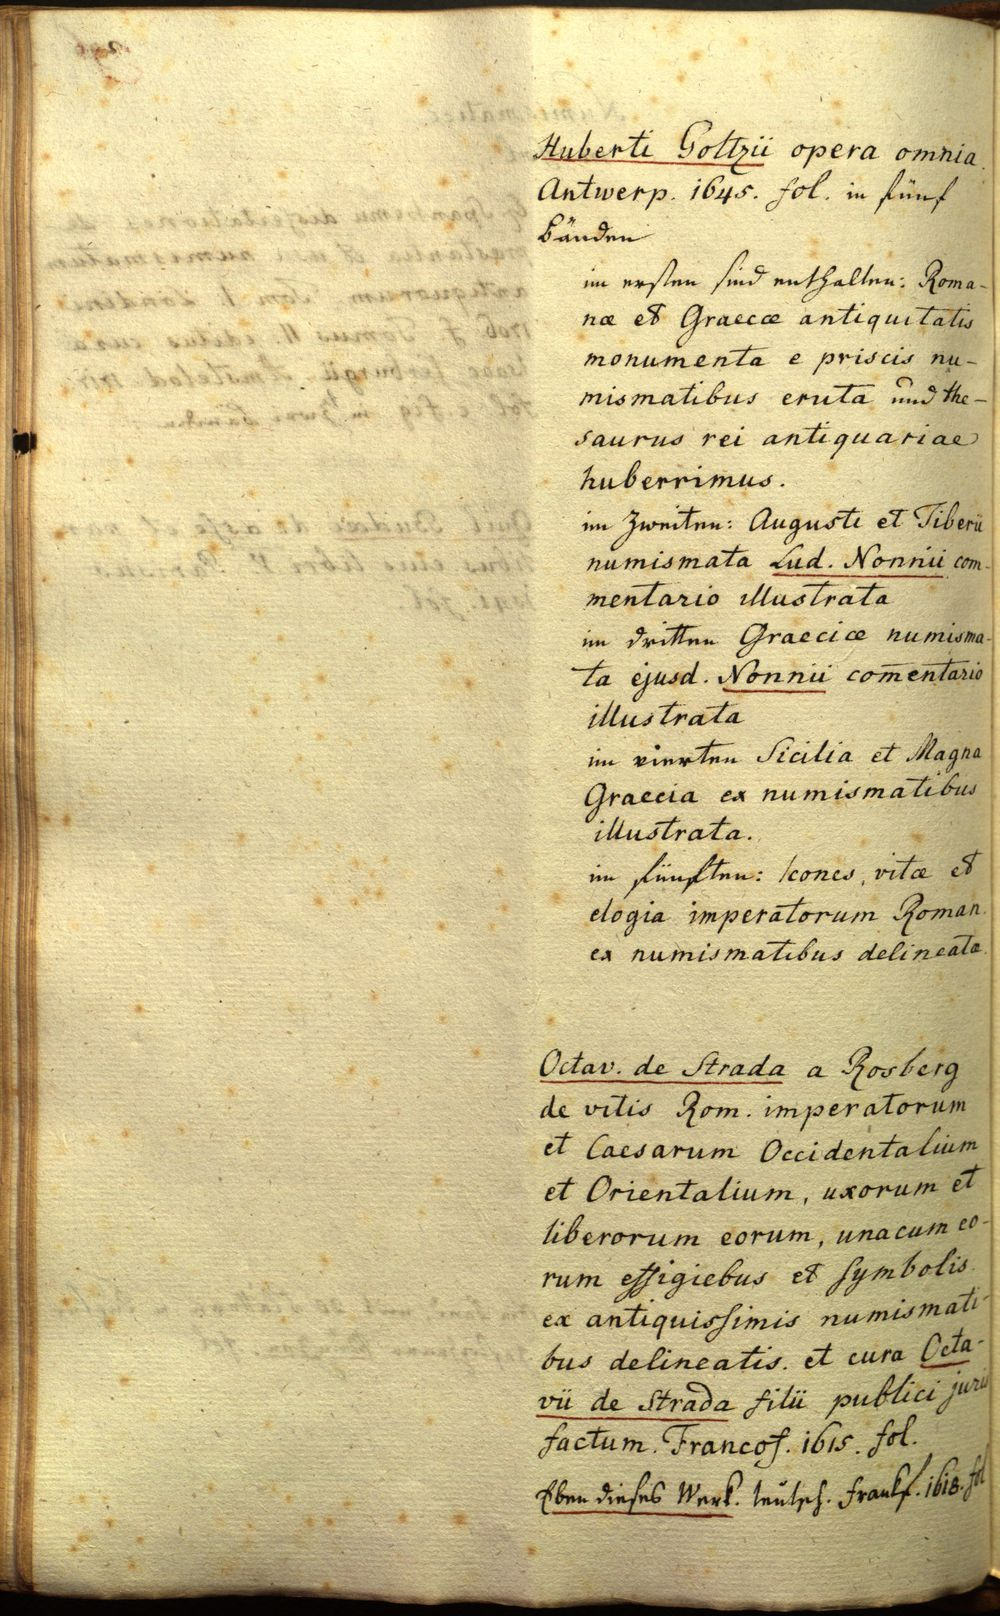 Huberti Goltzii opera omnia.
Antwerp. 1645. fol. in fünf
Bänden
im ersten sind enthalten: Roma-
næ et Graecæ antiquitatis
monumenta e priscis nu-
mismatibus eruta und the-
saurus rei antiquariae
huberrimus.
im Zweiten: Augusti et Tiberii
numismata Lud. Nonnii com-
mentario illustrata
im dritten Graeciæ numisma-
ta ejusd. Nonnii com̄entario
illustrata
im vierten Sicilia et Magna
Graecia ex numismatibus
illustrata.
im fünften: Icones, vitæ et
elogia imperatorum Roman.
ex numismatibus delineatæ.
Octav. de Strada a Rosberg
de vitis Rom. imperatorum
et Caesarum Occidentalium
et Orientalium, uxorum et
liberorum eorum, unacum eo-
rum effigiebus et symbolis
ex antiquissimis numismati-
bus delineatis. et cura Octa-
vii de Strada filii publici juris
factum. Francof. 1615. fol.
Eben dieses Werk. teutsch. Frankf. 1618. fol